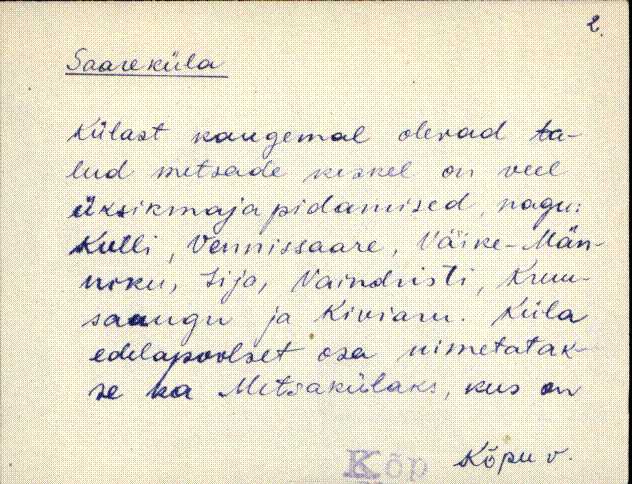 2.
Saareküla
Külast kaugemal olevad ta-
lud metsade keskel on veel
üksikmajapidamised, nagu:
Kulli, Vennissaare, Väike-Män-
niku, Sija, Vaindristi, Kruu-
saaugu ja Kiviaru. Küla
edelapoolset osa nimetatak-
se ka Metsakülaks, kus on
Kõp Kõpu v.